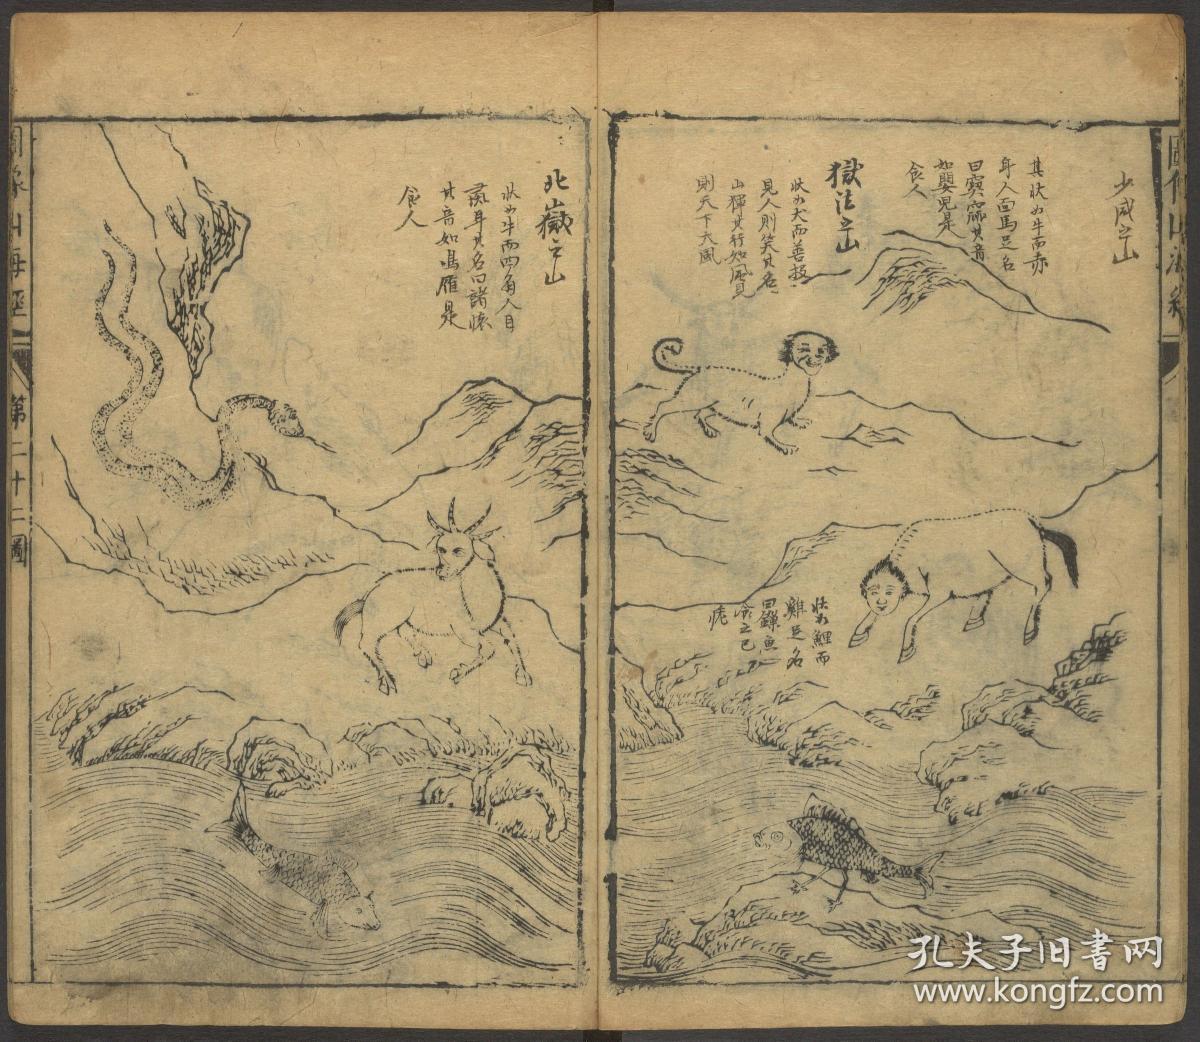 少咸之山
其狀如牛而赤
身人面馬足名
曰窫窳其音
如嬰兒是
食人
獄法之山
狀如犬而善投
見人則笑其名
山𤟤其行如風見
則天下大風
狀如鯉而
雞足名
曰鱳魚
食之已
疣
北嶽之山
狀如牛而四角人目
彘耳其名曰諸懷
其音如鳴雁是
食人
圖像山海經
第二十二圖
孔夫子旧书网
www.kongfz.com